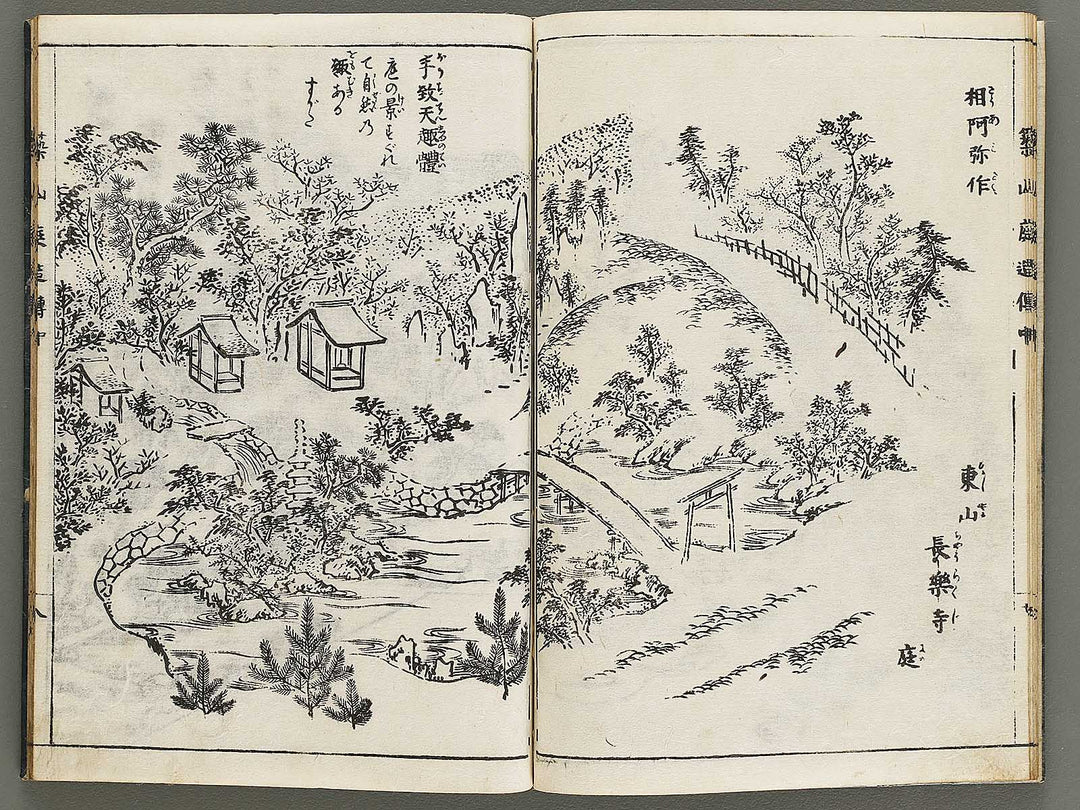 築山庭造傳中
相阿弥作
東山
長樂寺
庭
手致天趣體
庭の景すぐれ
て自然乃
ある
すがた
築山庭造傳中
八